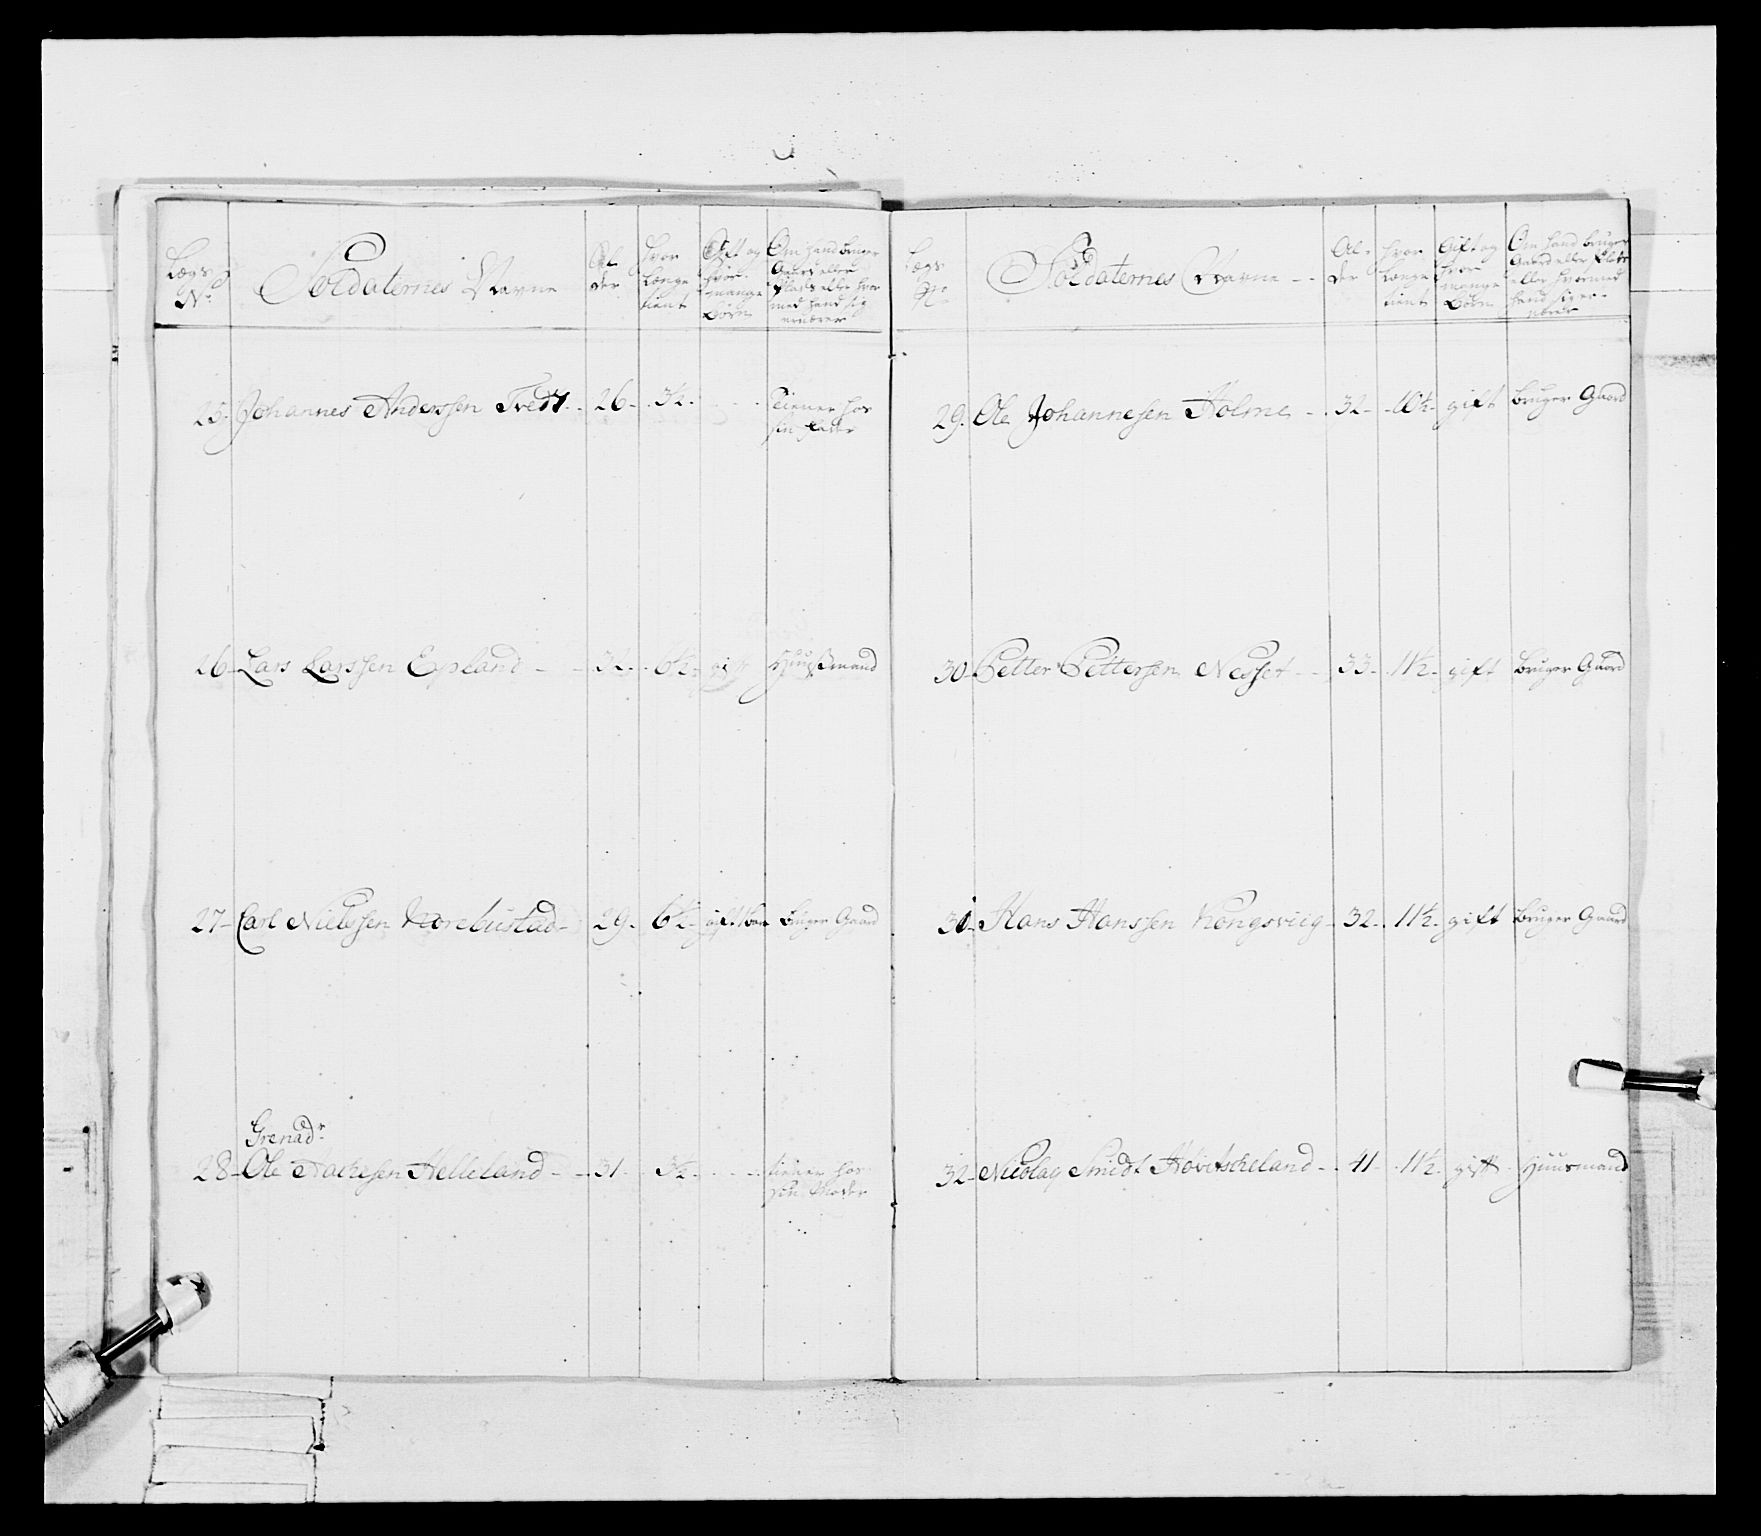 Lægs No
Soldaternes Navne
Al-
der
hvor
længe
tient
Gift og
hvor
mange
Børn
Om hand bruger
Gaard eller
Plads eller hvor
med hand sig
ernærer
25. Johannes Anderssen Tvedt - 26 - 3½ - tiener hos
sin Fader
26 - Lars Larssen Epland - 32 - 6½ - gift Huusmand
27 - Carl Nielssen Norebustad - 29 - 6½ - gift 1 barn bruger Gaard
Grenadr
28 - Ole Hachesen Helleland - 31 - 3½ - tiener hos
sin Moder
Lægs
No
Soldaternes Navne
Al-
der
hvor
længe
tient
Gift og
hvor
mange
Børn
Om hand bruger
Gaard eller Plads
eller hvormed
hand sig er-
nærer
29. Ole Johannesen Holme - 32 - 10½ - gift bruger Gaard
30 - Petter Pettersen Nesset - 33 - 11½ - gift bruger Gaard
31 - Hans Hanssen Kongsviig - 32 - 11½ - gift bruger Gaard
32 - Nicolay Smidt - 41 - 11½ - gift Huusmand